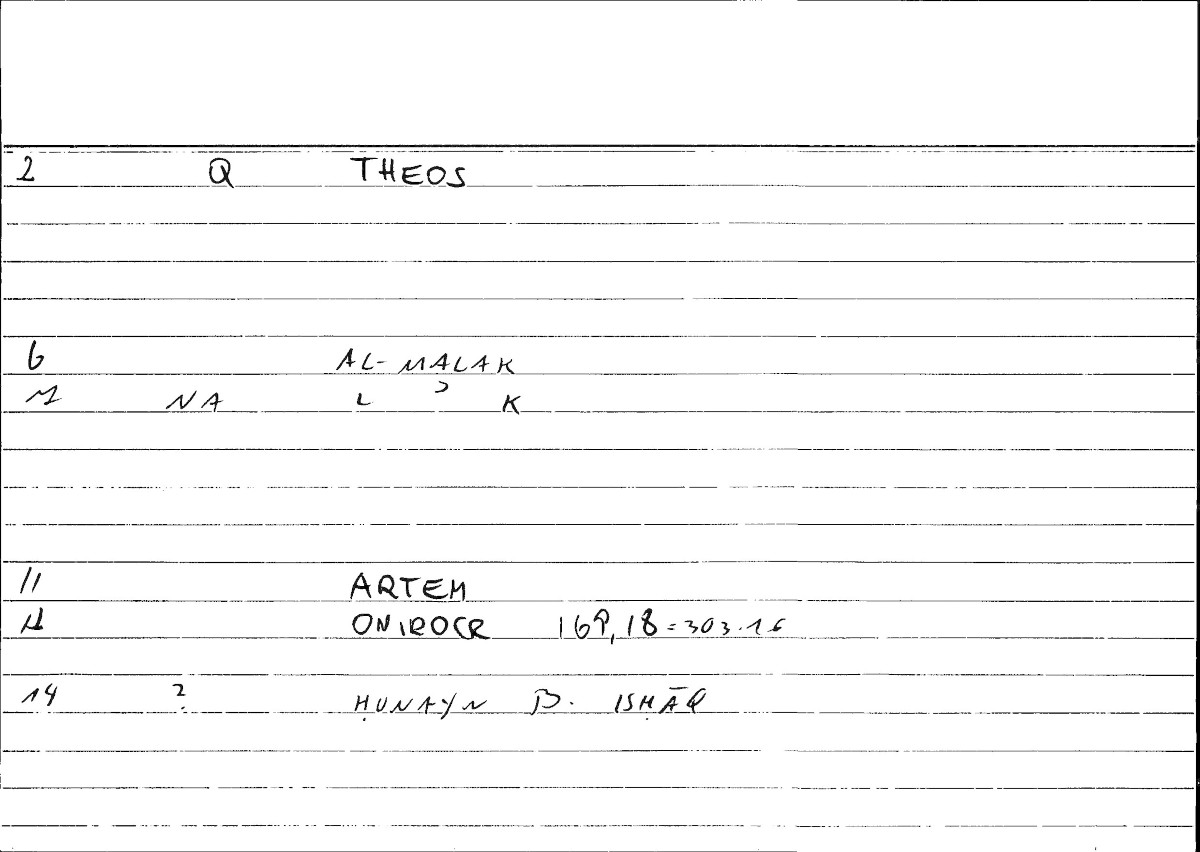 2 Q THEOS
6 AL-MALAK
NA L ʾ K
11 ARTEM
12 ONIROCR 169,18=303.16
14 ? ḤUNAYN B. ISḤĀQ